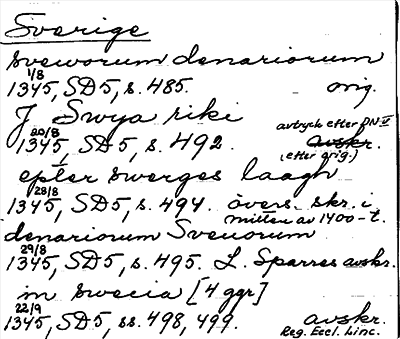 Sverige
sweworum denariorum
1/8
1345, SD5, s. 485. orig.
J Swya riki
20/8 avtryck efter DN V
1345, SD5, s. 492. avskr.
(efter orig.)
epter swerges laagh
28/8
1345, SD5, s. 494. övers. skr. i
mitten av 1400-t.
denariorum Sveuorum
29/8
1345, SD5, s. 495. L. Sparres avskr.
in swecia [4 ggr]
22/9
1345, SD5, ss. 498, 499. avskr.
Reg. Eccl. Linc.